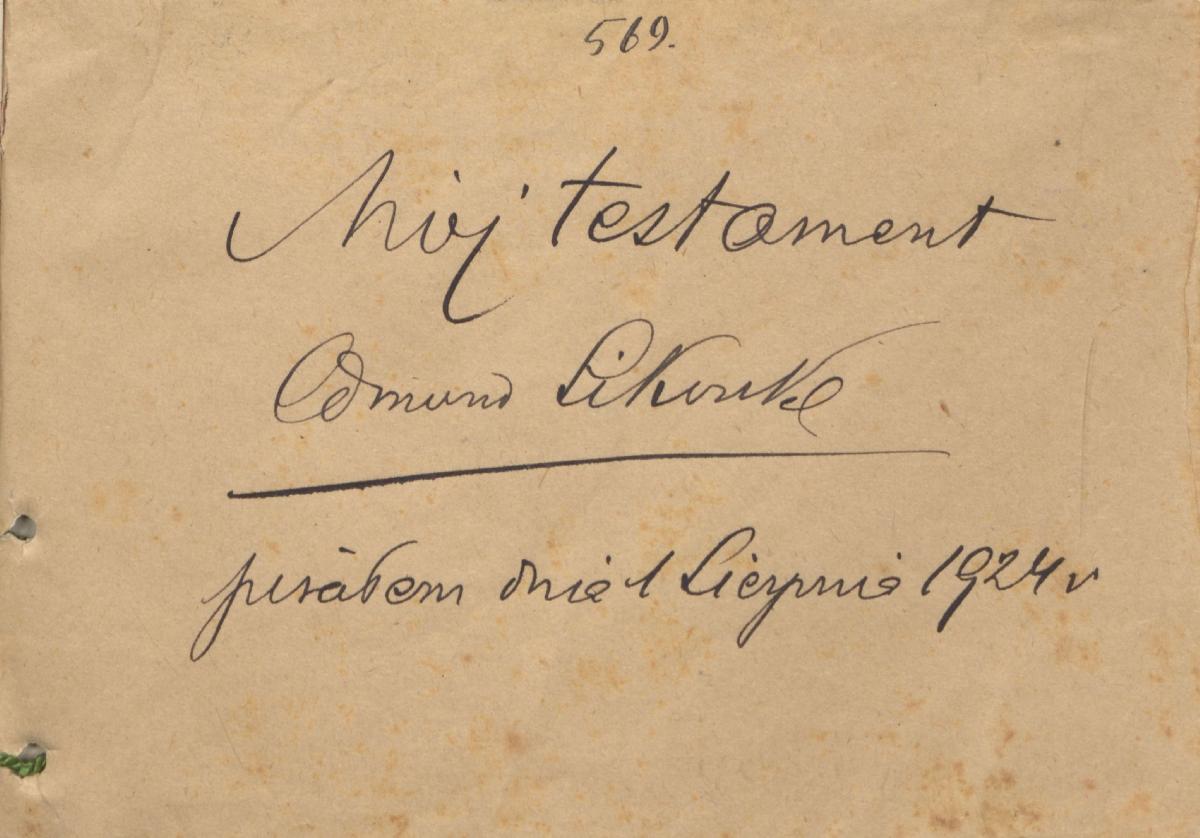 569.
Mój testament
Edmund
pisałem dnia 1 Sierpnia 1924 r